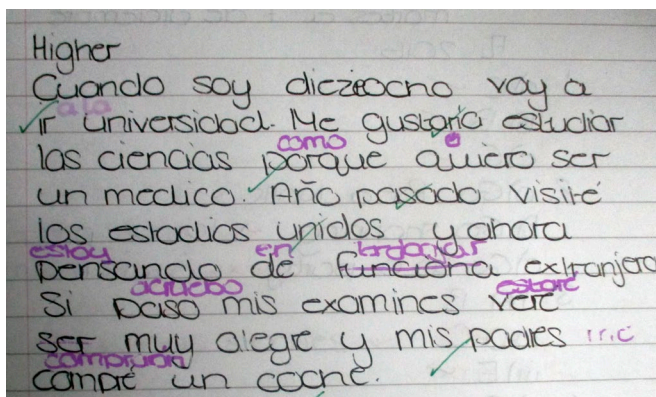 Higher
Cuando soy diezeocho voy a
a la
ir universidad. Me gustaría estudiar
como e
las ciencias porque quiero ser
un medico. Año pasado visité
los estadios unidos y ahora
estoy en trabajar
pensando de funciona extranjero
apruebo estaré
Si paso mis examines veré
ser muy alegre y mis padres me
comprarán
compré un coche.